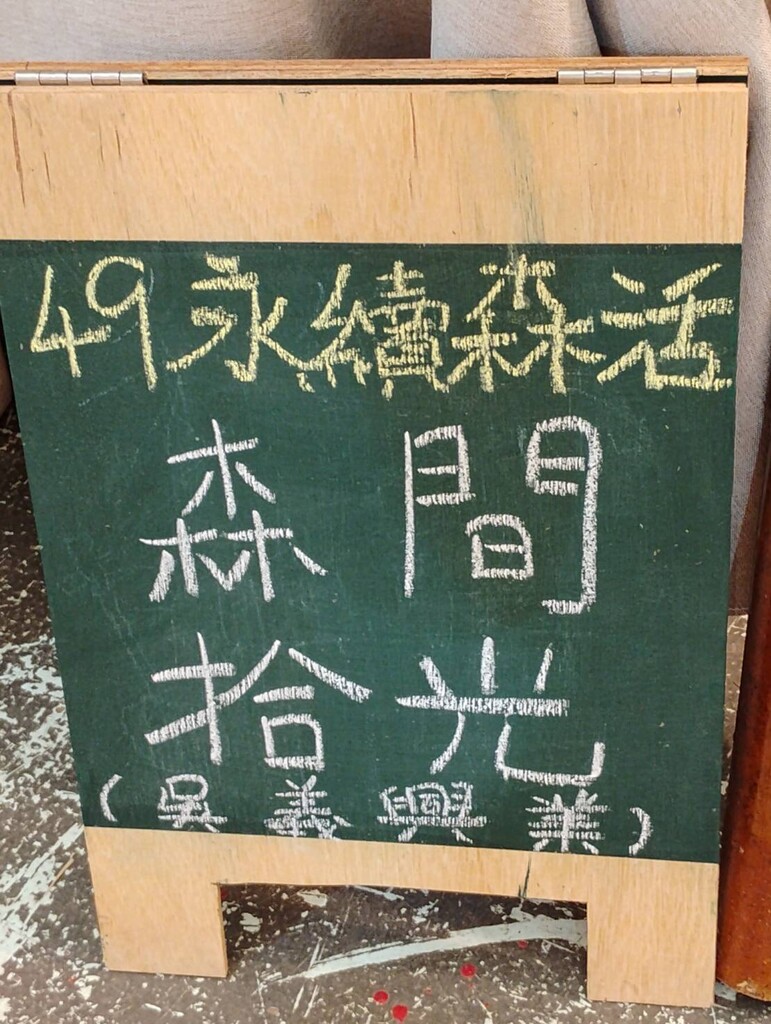 49永續森活
森間
拾光
(吳義興業)